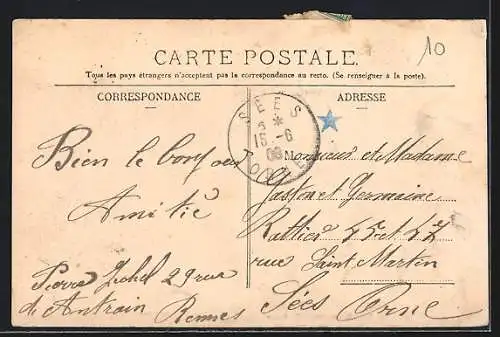 10
CARTE POSTALE.
Tous les pays étrangers n'acceptent pas la correspondance au recto. (Se renseigner à la poste).
CORRESPONDANCE
ADRESSE
SÉES
15 -6
08
ORNE
Bien le bonjour
Amitié
Pierre 29 rue
d'Antrain Rennes
Monsieur et Madame
Gaston et Germaine
Rattier 45 et 47
rue Saint Martin
Sées Orne